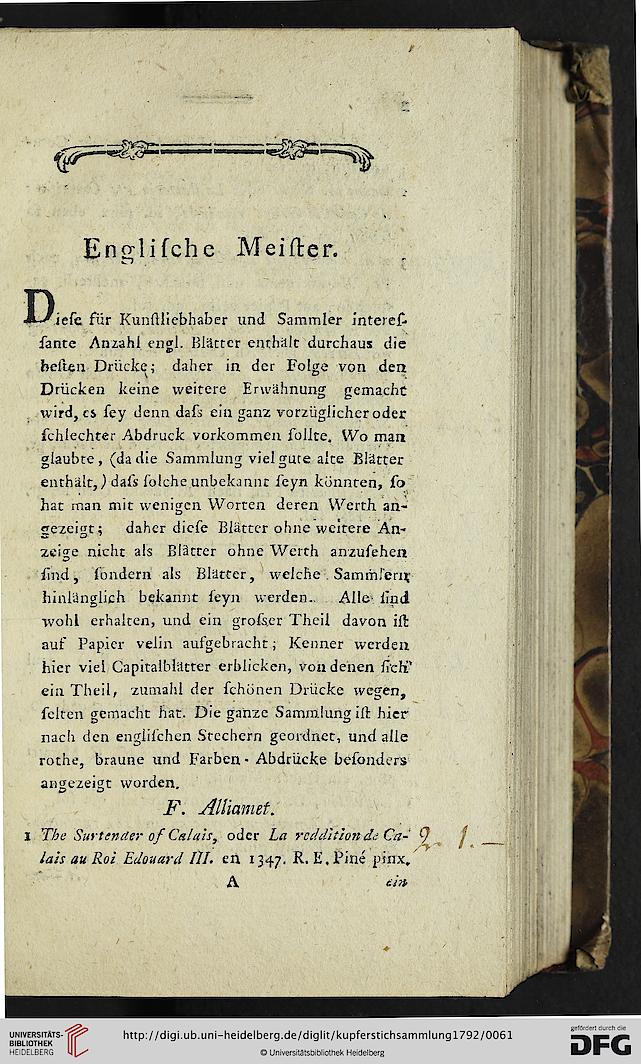 Engliſche Meiſter.
Dieſe für Kunſtliebhaber und Sammler intereſ-
ſante Anzahl engl. Blätter enthält durchaus die
beſten Drücke; daher in der Folge von den
Drücken keine weitere Erwähnung gemacht
wird, es ſey denn daſs ein ganz vorzüglicher oder
ſchlechter Abdruck vorkommen ſollte. Wo man
glaubte, (da die Sammlung viel gute alte Blätter
enthält,) daſs ſolche unbekannt ſeyn könnten, ſo
hat man mit wenigen Worten deren Werth an-
gezeigt; daher dieſe Blätter ohne weitere An-
zeige nicht als Blätter ohne Werth anzuſehen
ſind, ſondern als Blätter, welche Sammlern
hinlänglich bekannt ſeyn werden. Alle ſind
wohl erhalten, und ein groſser Theil davon iſt
auf Papier velin aufgebracht; Kenner werden
hier viel Capitalblätter erblicken, von denen ſich
ein Theil, zumahl der ſchönen Drücke wegen,
ſelten gemacht hat. Die ganze Sammlung iſt hier
nach den engliſchen Stechern geordnet, und alle
rothe, braune und Farben-Abdrücke beſonders
angezeigt worden.
F. Alliamet.
1 The Surtender of Calais, oder La reddition de Ca-
lais au Roi Edouard III. en 1347. R. E. Piné pinx.
2. 1. —
A ein
UNIVERSITÄTS-
BIBLIOTHEK
HEIDELBERG
http://digi.ub.uni-heidelberg.de/diglit/kupferstichsammlung1792/0061
© Universitätsbibliothek Heidelberg
gefördert durch die
DFG